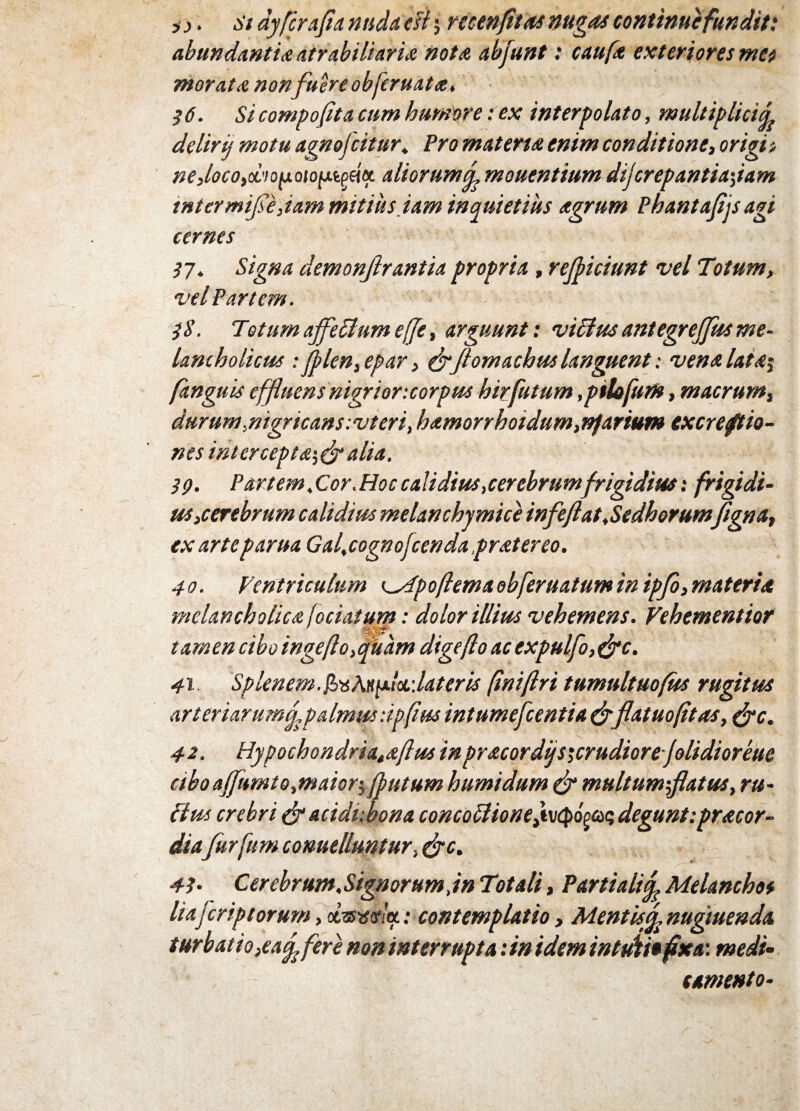 35. Si dyscrasia nuda est; recensitas nugas continuè fundit:
abundantiæ atrabiliariæ notæ absunt: causæ exteriores me⸗
moratæ non fuêre obseruatæ.
36. Si composita cum humore: ex interpolato, multipliciq́;
delirij motu agnoscitur. Pro materiæ enim conditione, origi⸗
ne, loco, ἀνομοιομερείᾳ aliorumq́; mouentium discrepantia; iam
intermissè, iam mitiùs iam inquietiùs ægrum Phantasijs agi
cernes
37. Signa demonstrantia propria, respiciunt vel Totum,
vel Partem.
38. Totum affectum esse, arguunt: victus antegressus me-
lancholicus: splen, epar, & stomachus languent: venæ latæ;
sanguis effluens nigrior: corpus hirsutum, pilosum, macrum,
durum, nigricans: vteri, hæmorrhoidum, narium excretio-
nes interceptæ; & alia.
39. Partem. Cor. Hoc calidius, cerebrum frigidius: frigidi-
us, cerebrum calidius melanchymicè infestat. Sed horum signa,
ex arte parua Gal. cognoscenda prætereo.
40. Ventriculum Apostema obseruatum in ipso, materiæ
melancholicæ sociatum: dolor illius vehemens. Vehementior
tamen cibo ingesto, quàm digesto ac expulso, &c.
41. Splenem. lateris sinistri tumultuosus rugitus
arteriarumq́; palmus: ipsius intumescentia & flatuositas, &c.
42. Hypochondria, æstus in præcordijs; crudiore solidioréue
cibo assumto, maior; sputum humidum & multum; flatus, ru-
ctus crebri & acidi: bona concoctione, degunt: præcor-
dia sursum conuelluntur, &c.
43. Cerebrum. Signorum, in Totali, Partialiq́; Melancho⸗
lia scriptorum, ἀπουσία: contemplatio, Mentisq́; nugiuenda
turbatio, eaq́; ferè non interrupta: in idem intuitio fixa: medi-
camento-